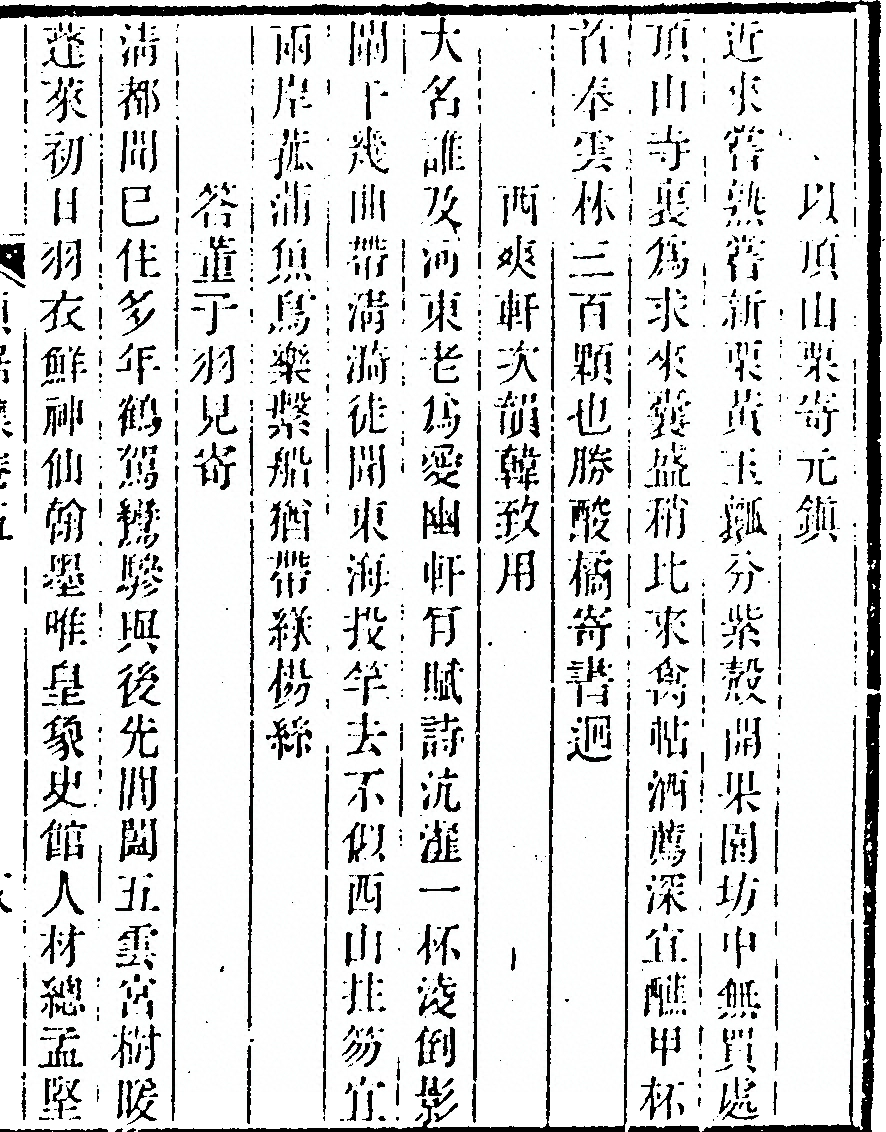 以頂山栗寄元鎮
近來嘗熟嘗新栗黃玉瓤分紫殼開果園坊中無買處
頂山寺裏為求來囊盛稍比來禽帖酒薦深宜醮甲杯
首奉雲林三百顆也勝酸橘寄書迴
西爽軒次韻韓致用
大名誰及河東老為愛幽軒有賦詩沆瀣一杯淩倒影
闌干幾曲帶淸漪徒聞東海投竿去不似西山拄笏宜
兩岸菰蒲魚鳥樂繫船猶帶綠楊絲
答董于羽見寄
淸都聞巳住多年鶴駕鸞驂與後先閶闔五雲宮樹暖
蓬萊初日羽衣鮮神仙翰墨唯皇象史館人材總孟堅